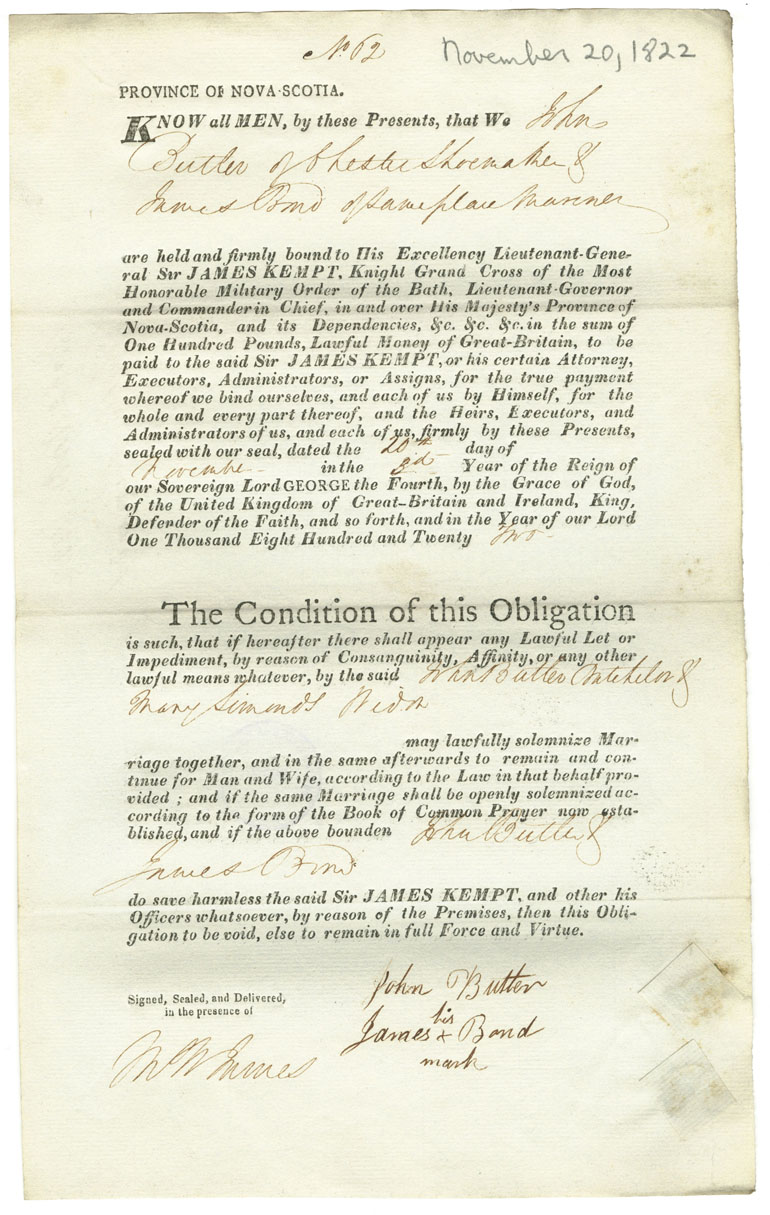 No. 62
November 20, 1822
PROVINCE OF NOVA-SCOTIA.
KNOW all MEN, by these Presents, that We John
Butler of Chester Shoemaker &
James Bond of same place Mariner
are held and firmly bound to His Excellency Lieutenant-Gene-
ral Sir JAMES KEMPT, Knight Grand Cross of the Most
Honorable Military Order of the Bath, Lieutenant-Governor
and Commander in Chief, in and over His Majesty's Province of
Nova-Scotia, and its Dependencies, &c. &c. &c. in the sum of
One Hundred Pounds, Lawful Money of Great-Britain, to be
paid to the said Sir JAMES KEMPT, or his certain Attorney,
Executors, Administrators, or Assigns, for the true payment
whereof we bind ourselves, and each of us by Himself, for the
whole and every part thereof, and the Heirs, Executors, and
Administrators of us, and each of us, firmly by these Presents,
sealed with our seal, dated the 20th day of
November in the 3d Year of the Reign of
our Sovereign Lord GEORGE the Fourth, by the Grace of God,
of the United Kingdom of Great-Britain and Ireland, King,
Defender of the Faith, and so forth, and in the Year of our Lord
One Thousand Eight Hundred and Twenty Two
The Condition of this Obligation
is such, that if hereafter there shall appear any Lawful Let or
Impediment, by reason of Consanguinity, Affinity, or any other
lawful means whatever, by the said John Butler Batchelor &
Mary Simonds Widow
may lawfully solemnize Mar-
riage together, and in the same afterwards to remain and con-
tinue for Man and Wife, according to the Law in that behalf pro-
vided ; and if the same Marriage shall be openly solemnized ac-
cording to the form of the Book of Common Prayer now esta-
blished, and if the above bounden John Butler &
James Bond
do save harmless the said Sir JAMES KEMPT, and other his
Officers whatsoever, by reason of the Premises, then this Obli-
gation to be void, else to remain in full Force and Virtue.
Signed, Sealed, and Delivered,
in the presence of
John Butler
his
James x Bond
mark
James